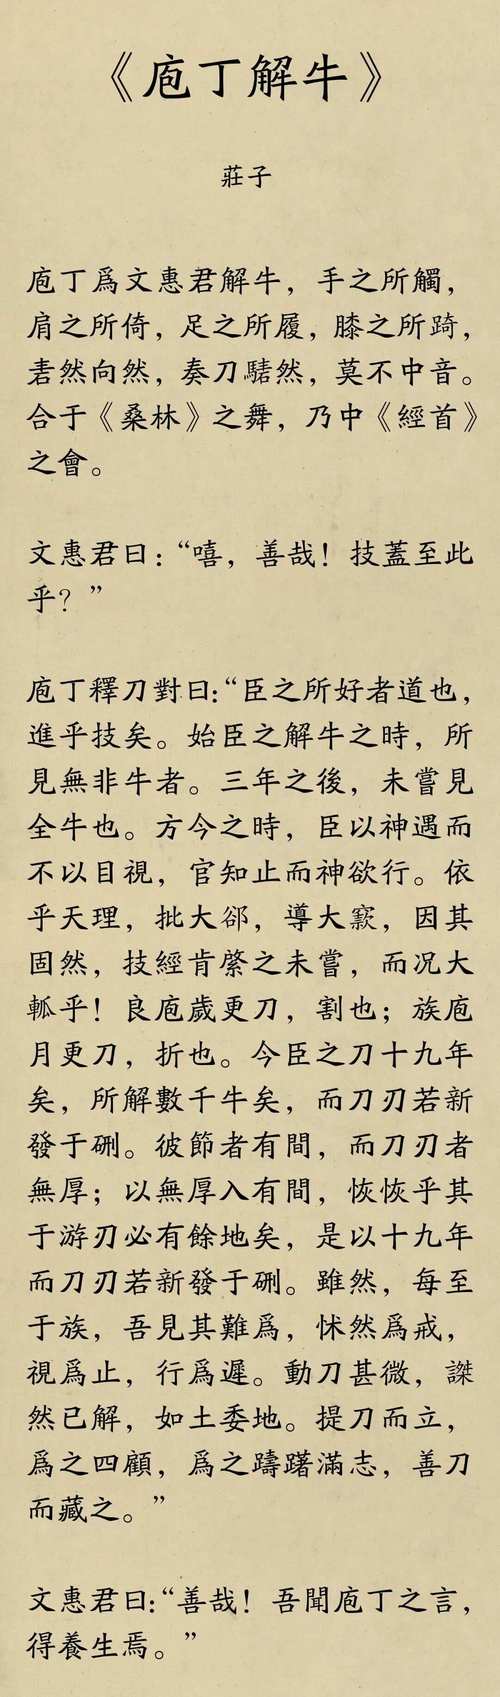 《庖丁解牛》
莊子
庖丁爲文惠君解牛，手之所觸，
肩之所倚，足之所履，膝之所踦，
砉然向然，奏刀騞然，莫不中音。
合于《桑林》之舞，乃中《經首》
之會。
文惠君曰：“嘻，善哉！技蓋至此
乎？”
庖丁釋刀對曰：“臣之所好者道也，
進乎技矣。始臣之解牛之時，所
見無非牛者。三年之後，未嘗見
全牛也。方今之時，臣以神遇而
不以目視，官知止而神欲行。依
乎天理，批大郤，導大窾，因其
固然，技經肯綮之未嘗，而況大
軱乎！良庖歲更刀，割也；族庖
月更刀，折也。今臣之刀十九年
矣，所解數千牛矣，而刀刃若新
發于硎。彼節者有間，而刀刃者
無厚；以無厚入有間，恢恢乎其
于游刃必有餘地矣，是以十九年
而刀刃若新發于硎。雖然，每至
于族，吾見其難爲，怵然爲戒，
視爲止，行爲遲。動刀甚微，謋
然已解，如土委地。提刀而立，
爲之四顧，爲之躊躇滿志，善刀
而藏之。”
文惠君曰：“善哉！吾聞庖丁之言，
得養生焉。”